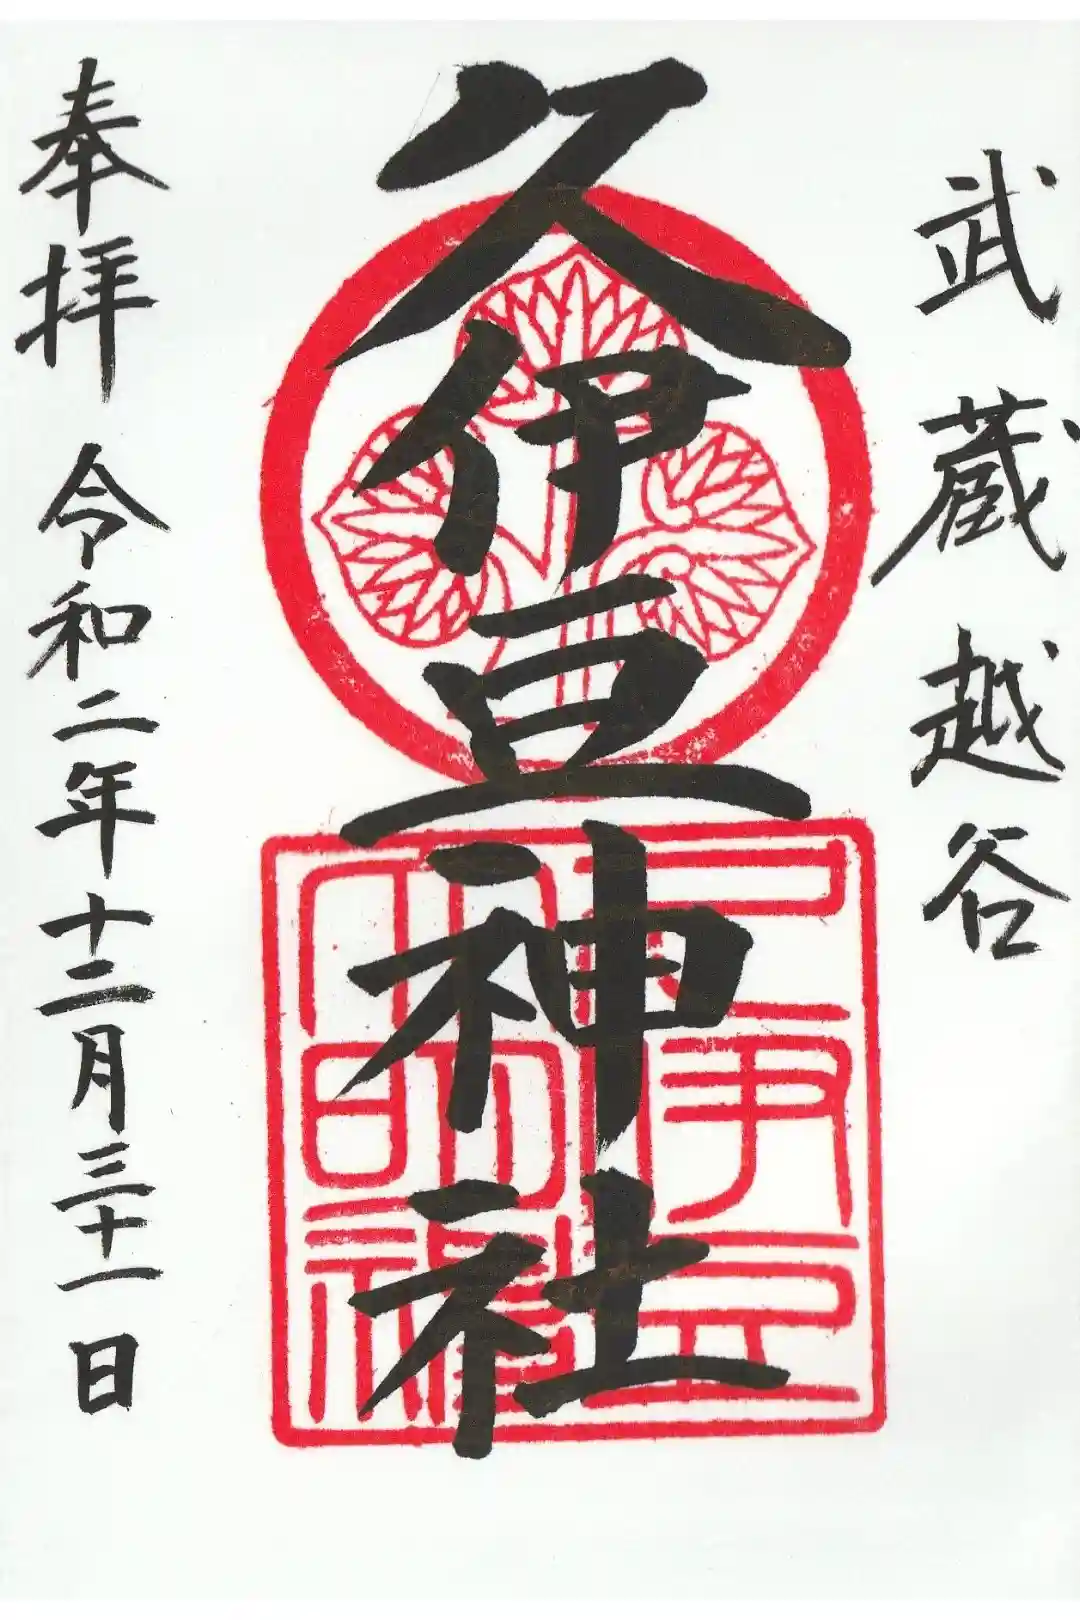 武蔵越谷
久伊豆神社
奉拝 令和二年十二月三十一日